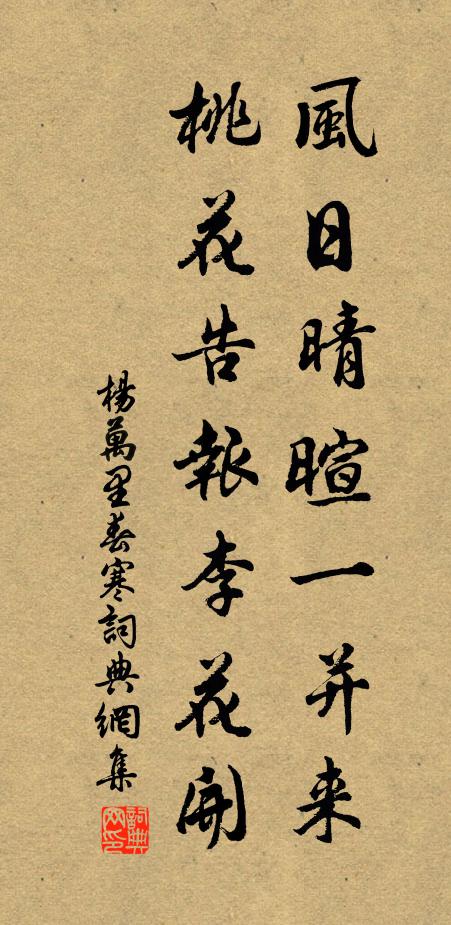 風日晴暄一并来
桃花告報李花開
楊萬里春寒詞典網集
詞典網印